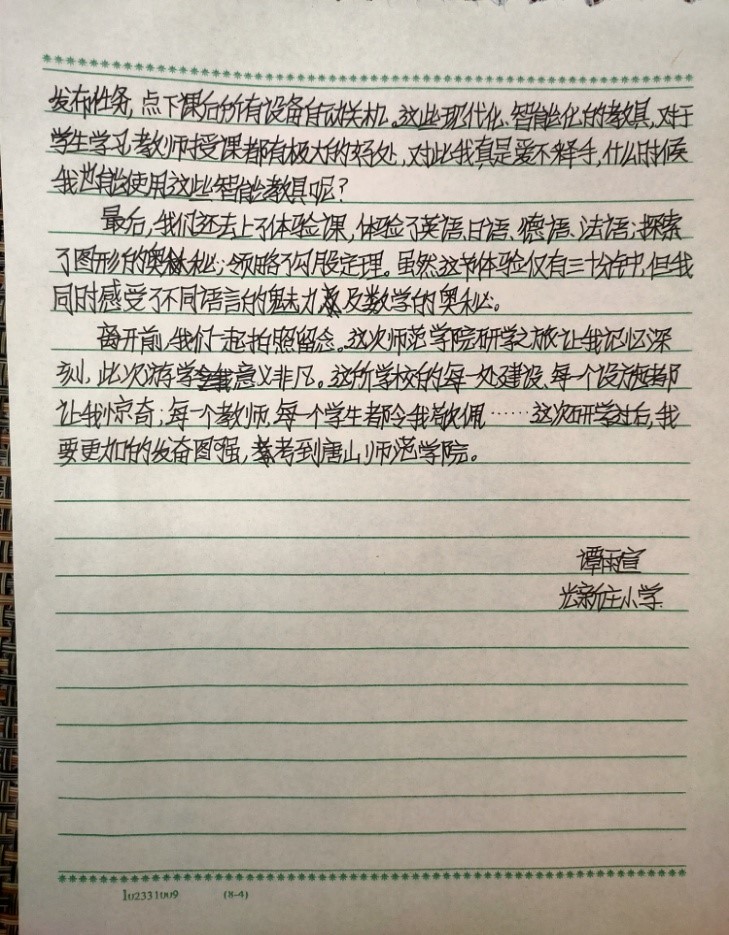 发布任务,点下课后所有设备自动关机。这些现代化、智能化的教具,对于
学生学习,教师授课都有极大的好处,对此我真是爱不释手,什么时候
我也能使用这些智能教具呢?
最后,我们还去上了体验课,体验了英语、日语、德语、法语;探索
了图形的奥秘;领略了勾股定理。虽然这节体验仅有三十分钟,但我
同时感受了不同语言的魅力及数学的奥秘。
离开前,我们一起拍照留念。这次师范学院研学之旅让我记忆深
刻,此次游学意义非凡。这所学校的每一处建设、每一个设施都
让我惊奇;每一个教师,每一个学生都令我钦佩……这次研学过后,我
要更加的发奋图强,考到唐山师范学院。
谭雨宣
新庄小学
102331009 (8-4)